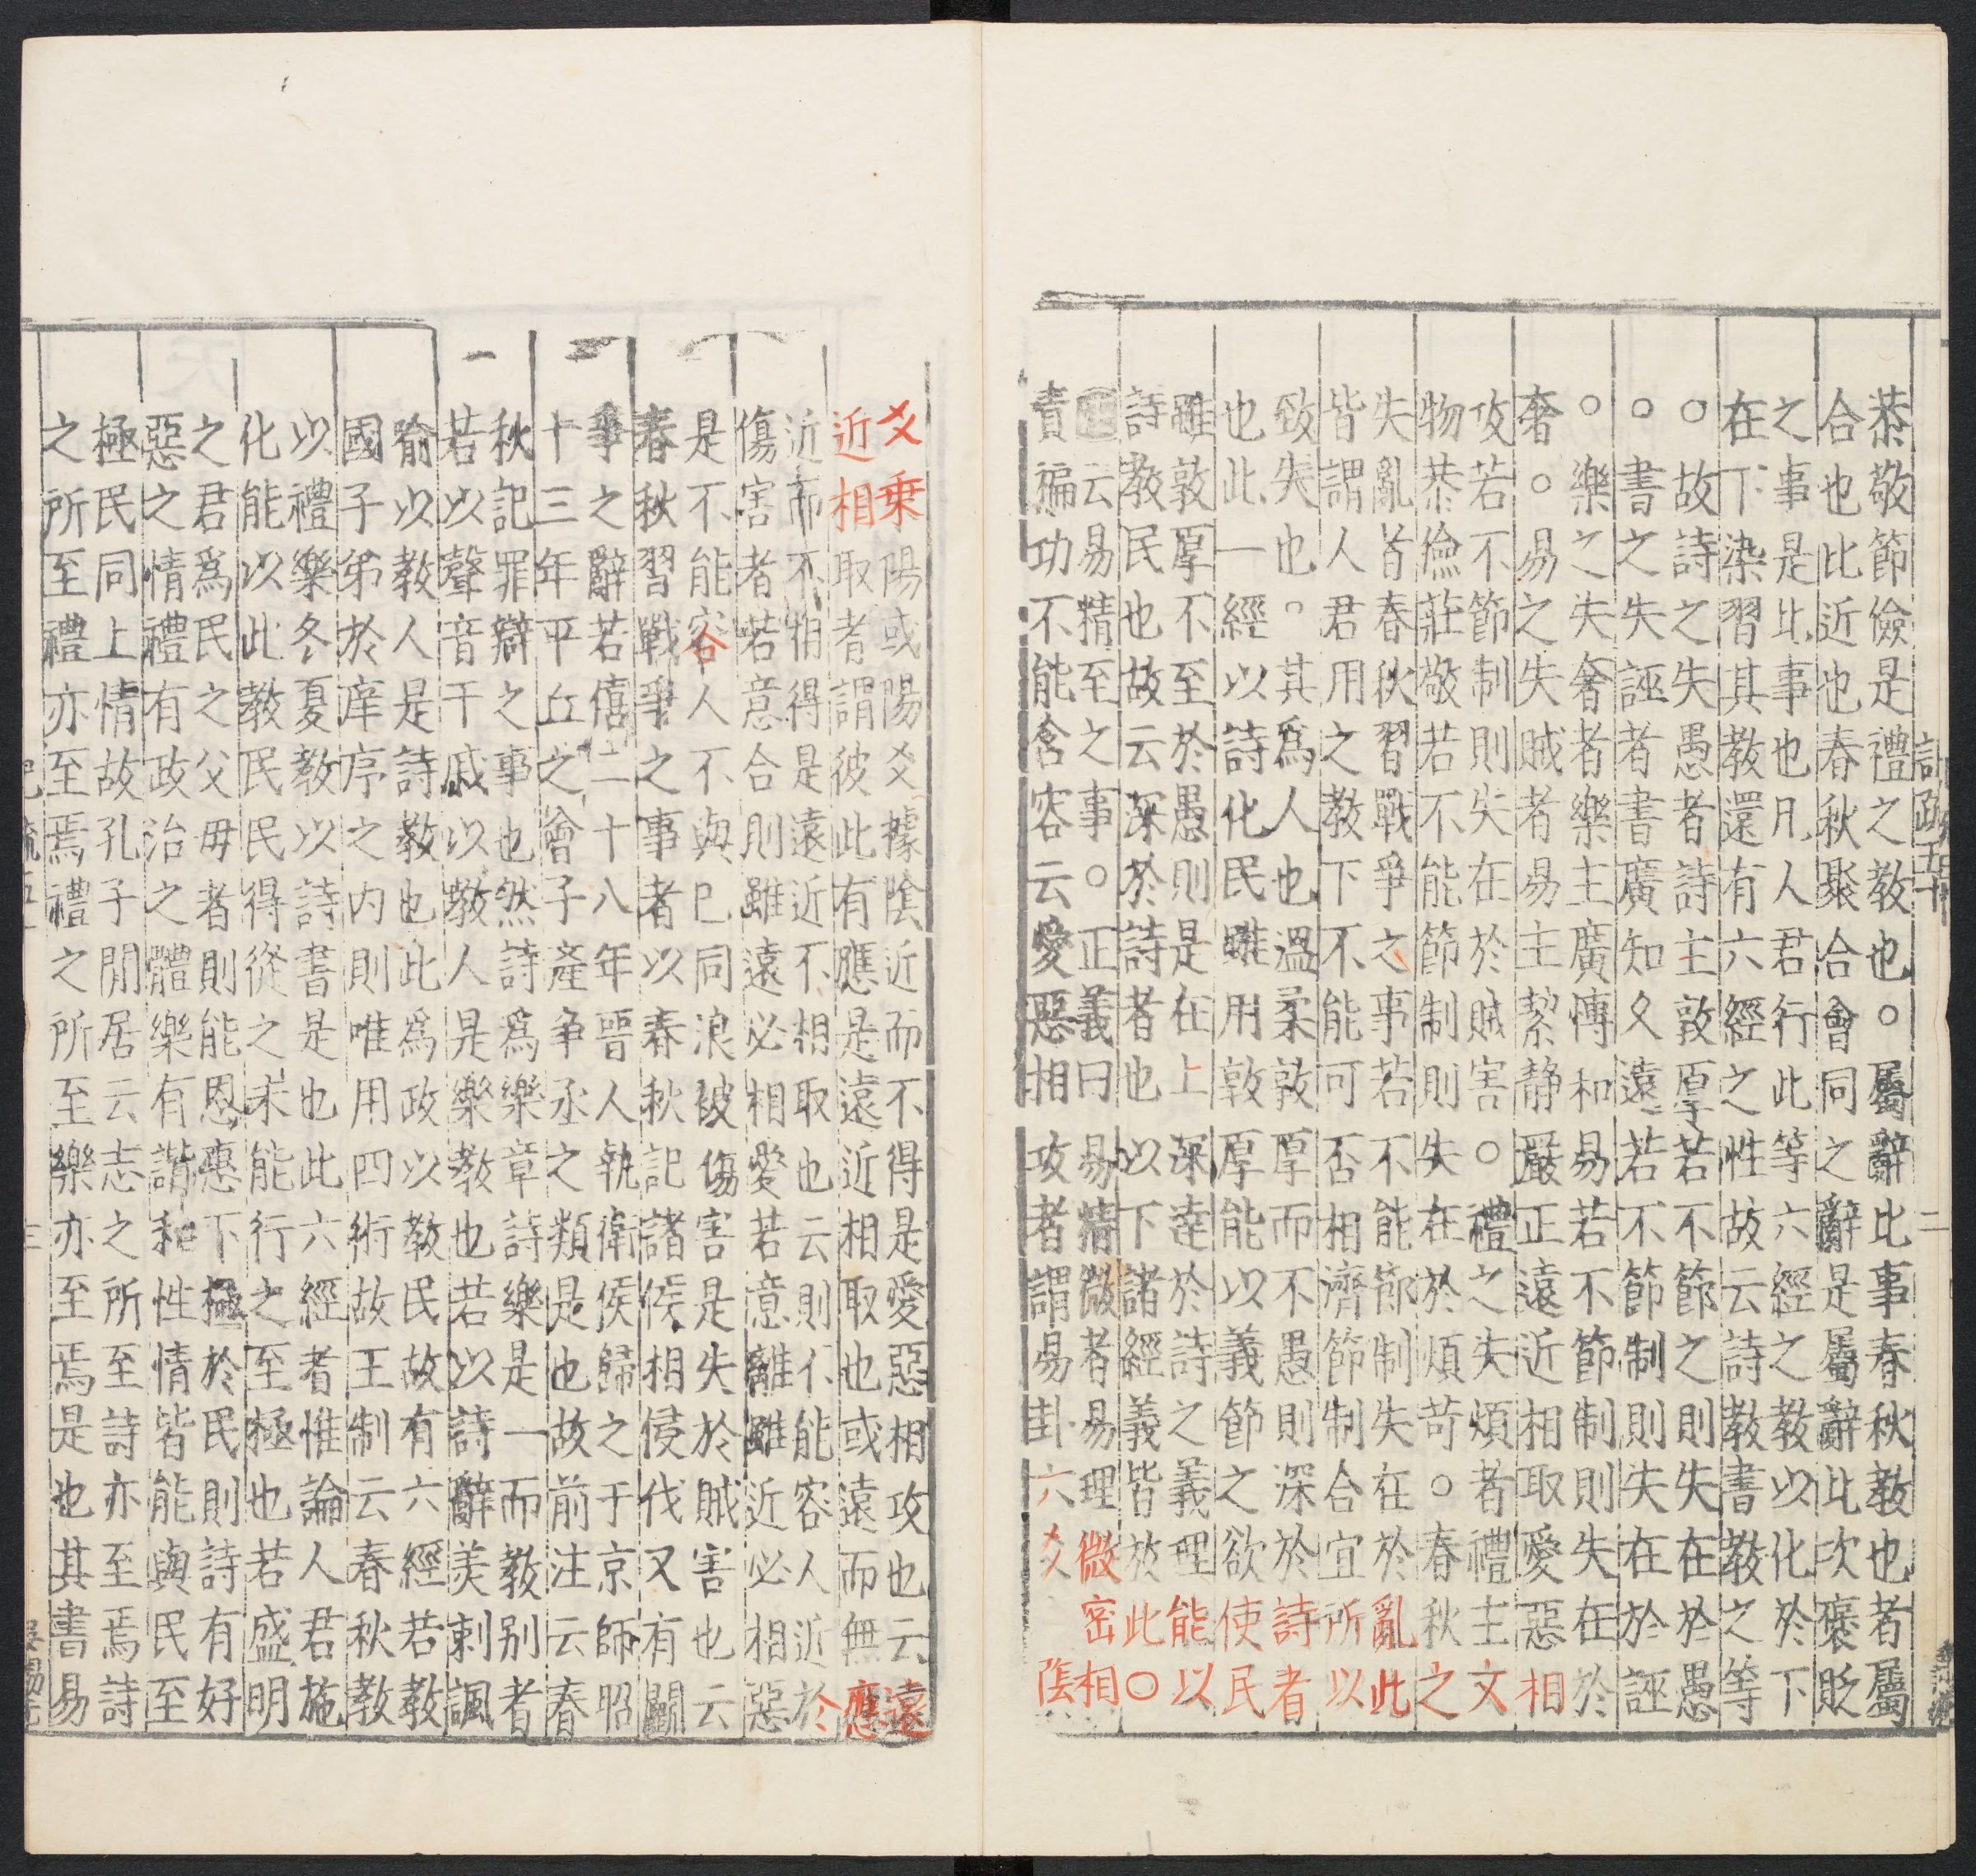 恭敬節儉是禮之教也○屬辭比事春秋教也者屬
合也比近也春秋聚合會同之辭是屬辭比次褒貶
之事是比事也凡人君行此等六經之教以化於下
在下染習其教還有六經之性故云詩教書教之等
○故詩之失愚者詩主敦厚若不節之則失在於愚
○書之失誣者書廣知久遠若不節制則失在於誣
○樂之失奢者樂主廣博和易若不節制則失在於
奢○易之失賊者易主絜静嚴正遠近相取愛惡相
攻若不節制則失在於賊害○禮之失煩者禮主文
物恭儉莊敬若不能節制則失在於煩苛○春秋之
失亂首春秋習戰爭之事若不能節制失在於亂此
皆謂人君用之教下不能可否相濟節制合宜所以
致失也○其爲人也温柔敦厚而不愚則深於詩者
也此一經以詩化民雖用敦厚能以義節之欲使民
雖敦厚不至於愚則是在上深達於詩之義理能以
詩教民也故云深於詩者也以下諸經義皆放此○
云易精至之事○正義曰易精微者易理微密相
責褊功不能含容云愛惡相攻者謂易卦六爻陰
爻乗陽或陽爻據陰近而不得是愛惡相攻也云遠
近相取者謂彼此有應是遠近相取也或遠而無應
近而不相得是遠近不相取也云則不能容人近於
傷害者若意合則雖遠必相愛若意離雖近必相惡
是不能容人不與已同浪被傷害是失於賊害也云
春秋習戰爭之事者以春秋記諸侯相侵伐又有鬭
爭之辭若僖二十八年晉人執衛侯歸之于京師昭
十三年平丘之會子產争丞之類是也故前注云春
秋記罪辯之事也然詩爲樂章詩樂是一而教别者
若以聲音干戚以教人是樂教也若以詩辭美刺諷
喻以教人是詩教也此爲政以教民故有六經若教
國子弟於庠序之内則唯用四術故王制云春秋教
以禮樂冬夏教以詩書是也此六經者惟論人君施
化能以此教民民得從之未能行之至極也若盛明
之君爲民之父毋者則能恩惠下極於民則詩有好
惡之情禮有政治之體樂有諧和性情皆能與民至
極民同上情故孔子閒居云志之所至詩亦至焉詩
之所至禮亦至焉禮之所至樂亦至焉是也其書易